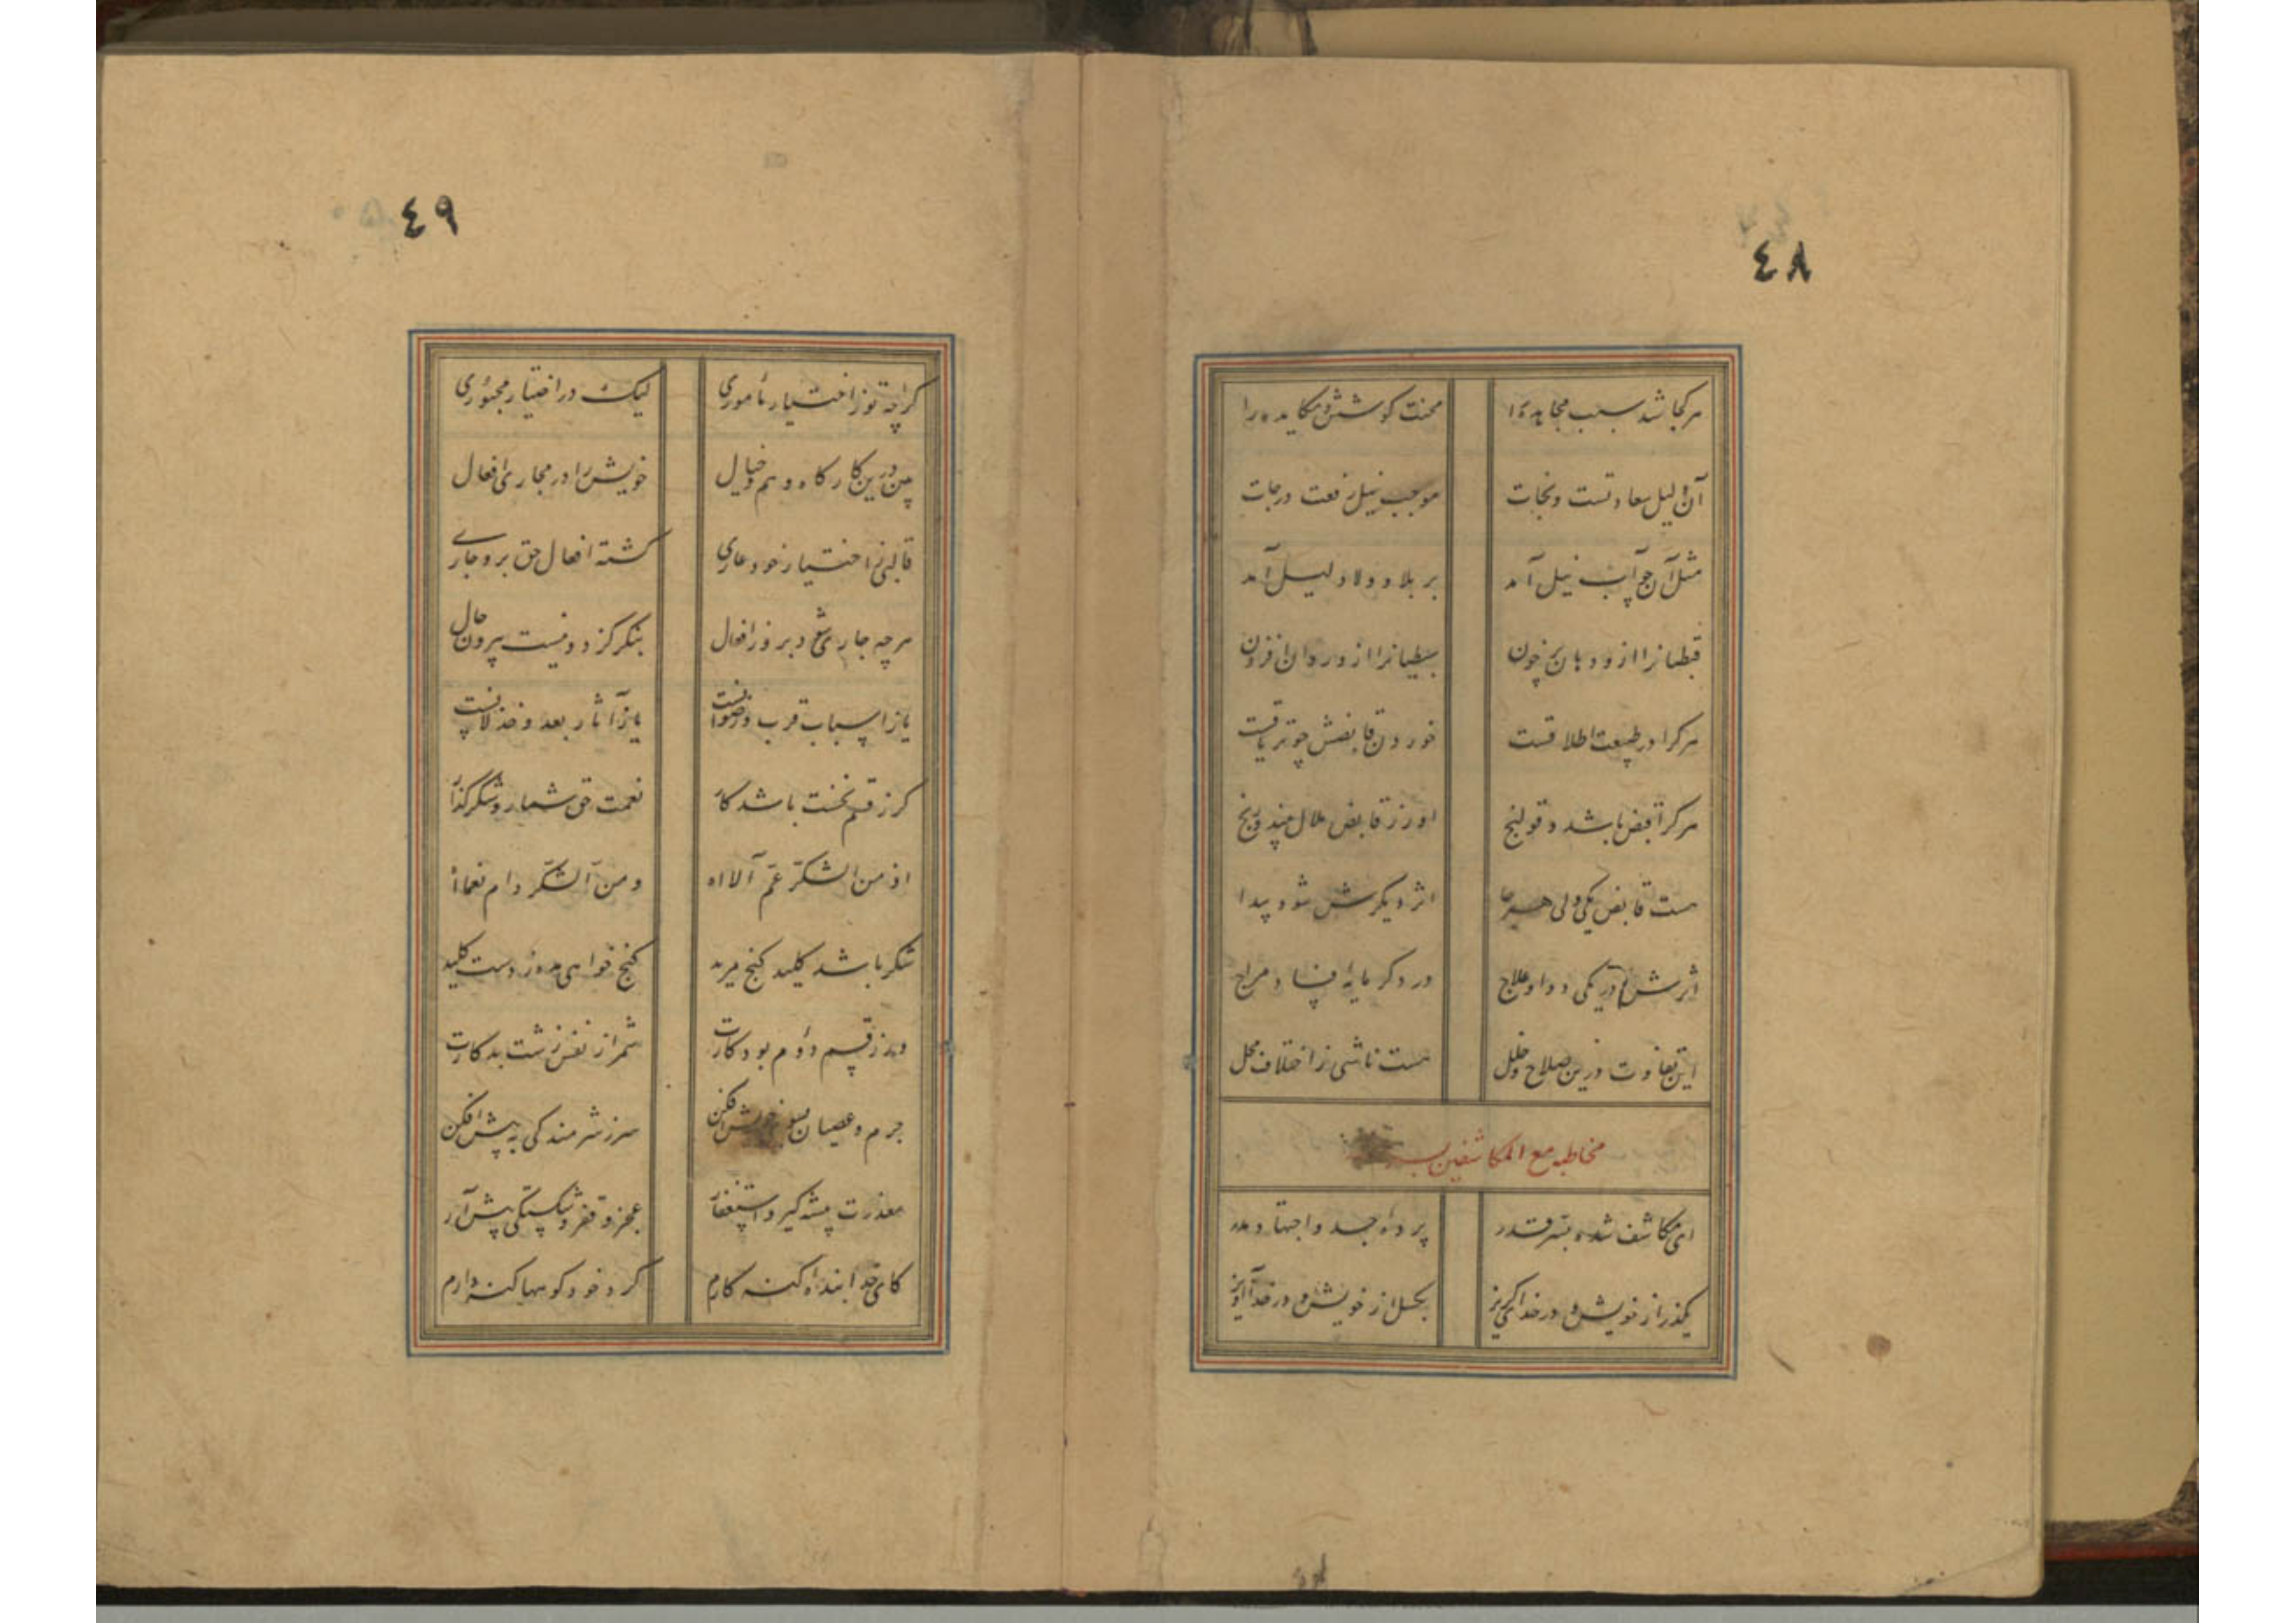 ٤٨
هر کجا شد سبب مجاهده را محنت کوشش و مکابده را
آن دلیل سعادتست و نجات موجب نیل رفعت درجات
مثل آن چو آب نیل آمد بر بلا و ولا دلیل آمد
قبطیانرا ازو دهان پر خون سبطیانرا ازو روان افزون
هرکرا در طبیعت اطلاقست خوردن قابضش چو تریاقست
هرکرا قبض باشد و قولنج او ز قابض ملال بیند و رنج
هست قابض یکی ولی هرجا اثر دیگرش شود پیدا
اثرش در یکی دوا و علاج در دگر مایه فساد مزاج
این تفاوت درین صلاح و خلل هست ناشی ز اختلاف محل
مخاطبه مع المکاشفین بسر
ای مکاشف شده بسر قدر پرده جد و اجتهاد مدر
بگذر از خویش و در خدای گریز بگسل از خویش و در خدا آویز
٤٩
گرچه تو ز اختیار مأموری لیک در اختیار مجبوری
بین درین کارگاه وهم و خیال خویش را در مجاری افعال
قالبی ز اختیار خود عاری گشته افعال حق برو جاری
هرچه جاری شود برو ز افعال بنگر کز دو نیست بیرون حال
یا ز اسباب قرب و رضوانست یا ز آثار بعد و خذلانست
گر ز قسم نخست باشد کار نعمت حق شمار و شکر گذار
اذ من الشکر عم آلااه و من الشکر دام نعماه
شکر باشد کلید گنج مزید گنج خواهی مده ز دست کلید
ور ز قسم دوم بود کارت شمر از نفس زشت بدکارت
جرم و عصیان بسوی خویش افکن سر ز شرمندگی به پیش افکن
معذرت پیشه گیر و استغفار عجز و فقر و شکستگی پیش آر
کای خدا بنده گنه کارم کرد خود کوهها گنه دارم